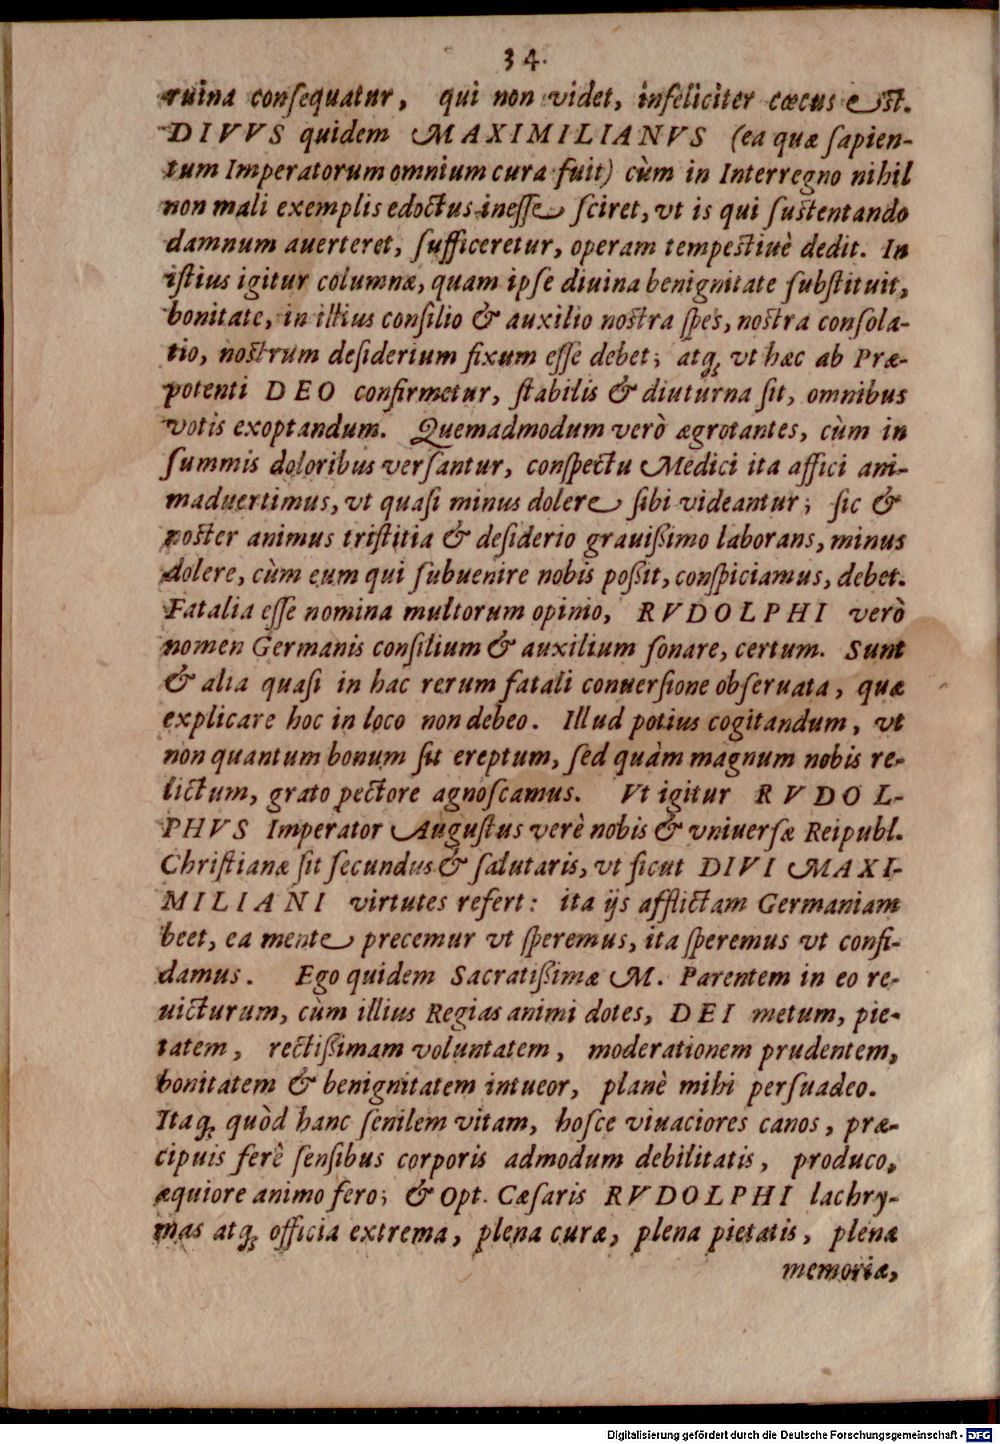 34.
ruina conſequatur, qui non videt, infeliciter cæcus eſt.
DIVVS quidem MAXIMILIANVS (ea quæ ſapien-
tum Imperatorum omnium cura fuit) cùm in Interregno nihil
non mali exemplis edoctus ineſſe ſciret, vt is qui ſuſtentando
damnum auerteret, ſufficeretur, operam tempeſtiuè dedit. In
iſtius igitur columnæ, quam ipſe diuina benignitate ſubſtituit,
bonitate, in illius conſilio & auxilio noſtra ſpes, noſtra conſola-
tio, noſtrum deſiderium fixum eſſe debet; atq; vt hæc ab Præ-
potenti DEO confirmetur, ſtabilis & diuturna ſit, omnibus
votis exoptandum. Quemadmodum verò ægrotantes, cùm in
ſummis doloribus verſantur, conſpectu Medici ita affici ani-
maduertimus, vt quaſi minus dolere ſibi videantur; ſic &
noſter animus triſtitia & deſiderio grauißimo laborans, minus
dolere, cùm eum qui ſubuenire nobis poßit, conſpiciamus, debet.
Fatalia eſſe nomina multorum opinio, RVDOLPHI verò
nomen Germanis conſilium & auxilium ſonare, certum. Sunt
& alia quaſi in hac rerum fatali conuerſione obſeruata, quæ
explicare hoc in loco non debeo. Illud potius cogitandum, vt
non quantum bonum ſit ereptum, ſed quàm magnum nobis re-
lictum, grato pectore agnoſcamus. Vt igitur RVDOL-
PHVS Imperator Auguſtus verè nobis & vniuerſæ Reipubl.
Chriſtianæ ſit ſecundus & ſalutaris, vt ſicut DIVI MAXI-
MILIANI virtutes refert: ita ijs afflictam Germaniam
beet, ea mente precemur vt ſperemus, ita ſperemus vt confi-
damus. Ego quidem Sacratißimæ M. Parentem in eo re-
uicturum, cùm illius Regias animi dotes, DEI metum, pie-
tatem, rectißimam voluntatem, moderationem prudentem,
bonitatem & benignitatem intueor, planè mihi perſuadeo.
Itaq; quòd hanc ſenilem vitam, hoſce viuaciores canos, præ-
cipuis ferè ſenſibus corporis admodum debilitatis, produco,
æquiore animo fero; & Opt. Cæſaris RVDOLPHI lachry-
mas atq; officia extrema, plena curæ, plena pietatis, plena
memoriæ,
Digitalisierung gefördert durch die Deutsche Forschungsgemeinschaft - DFG